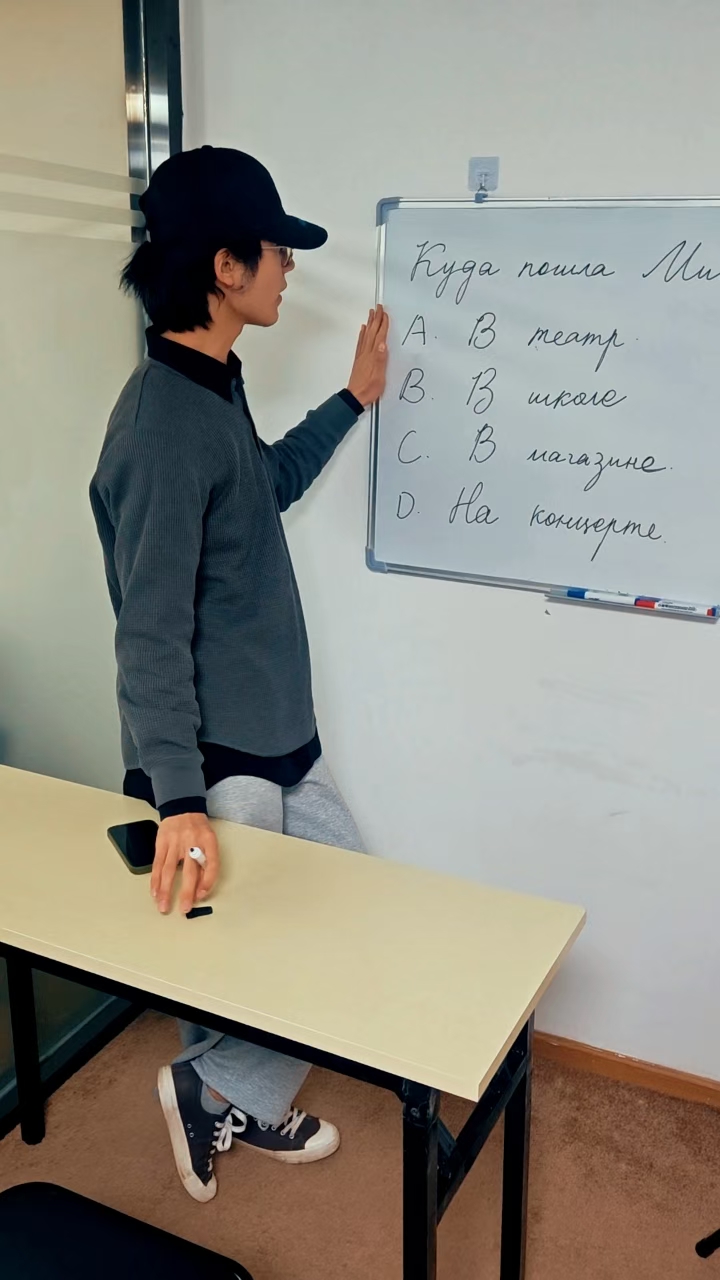 Куда пошла Ми
A. В театр.
B. В школе
C. В магазине.
D. На концерте.